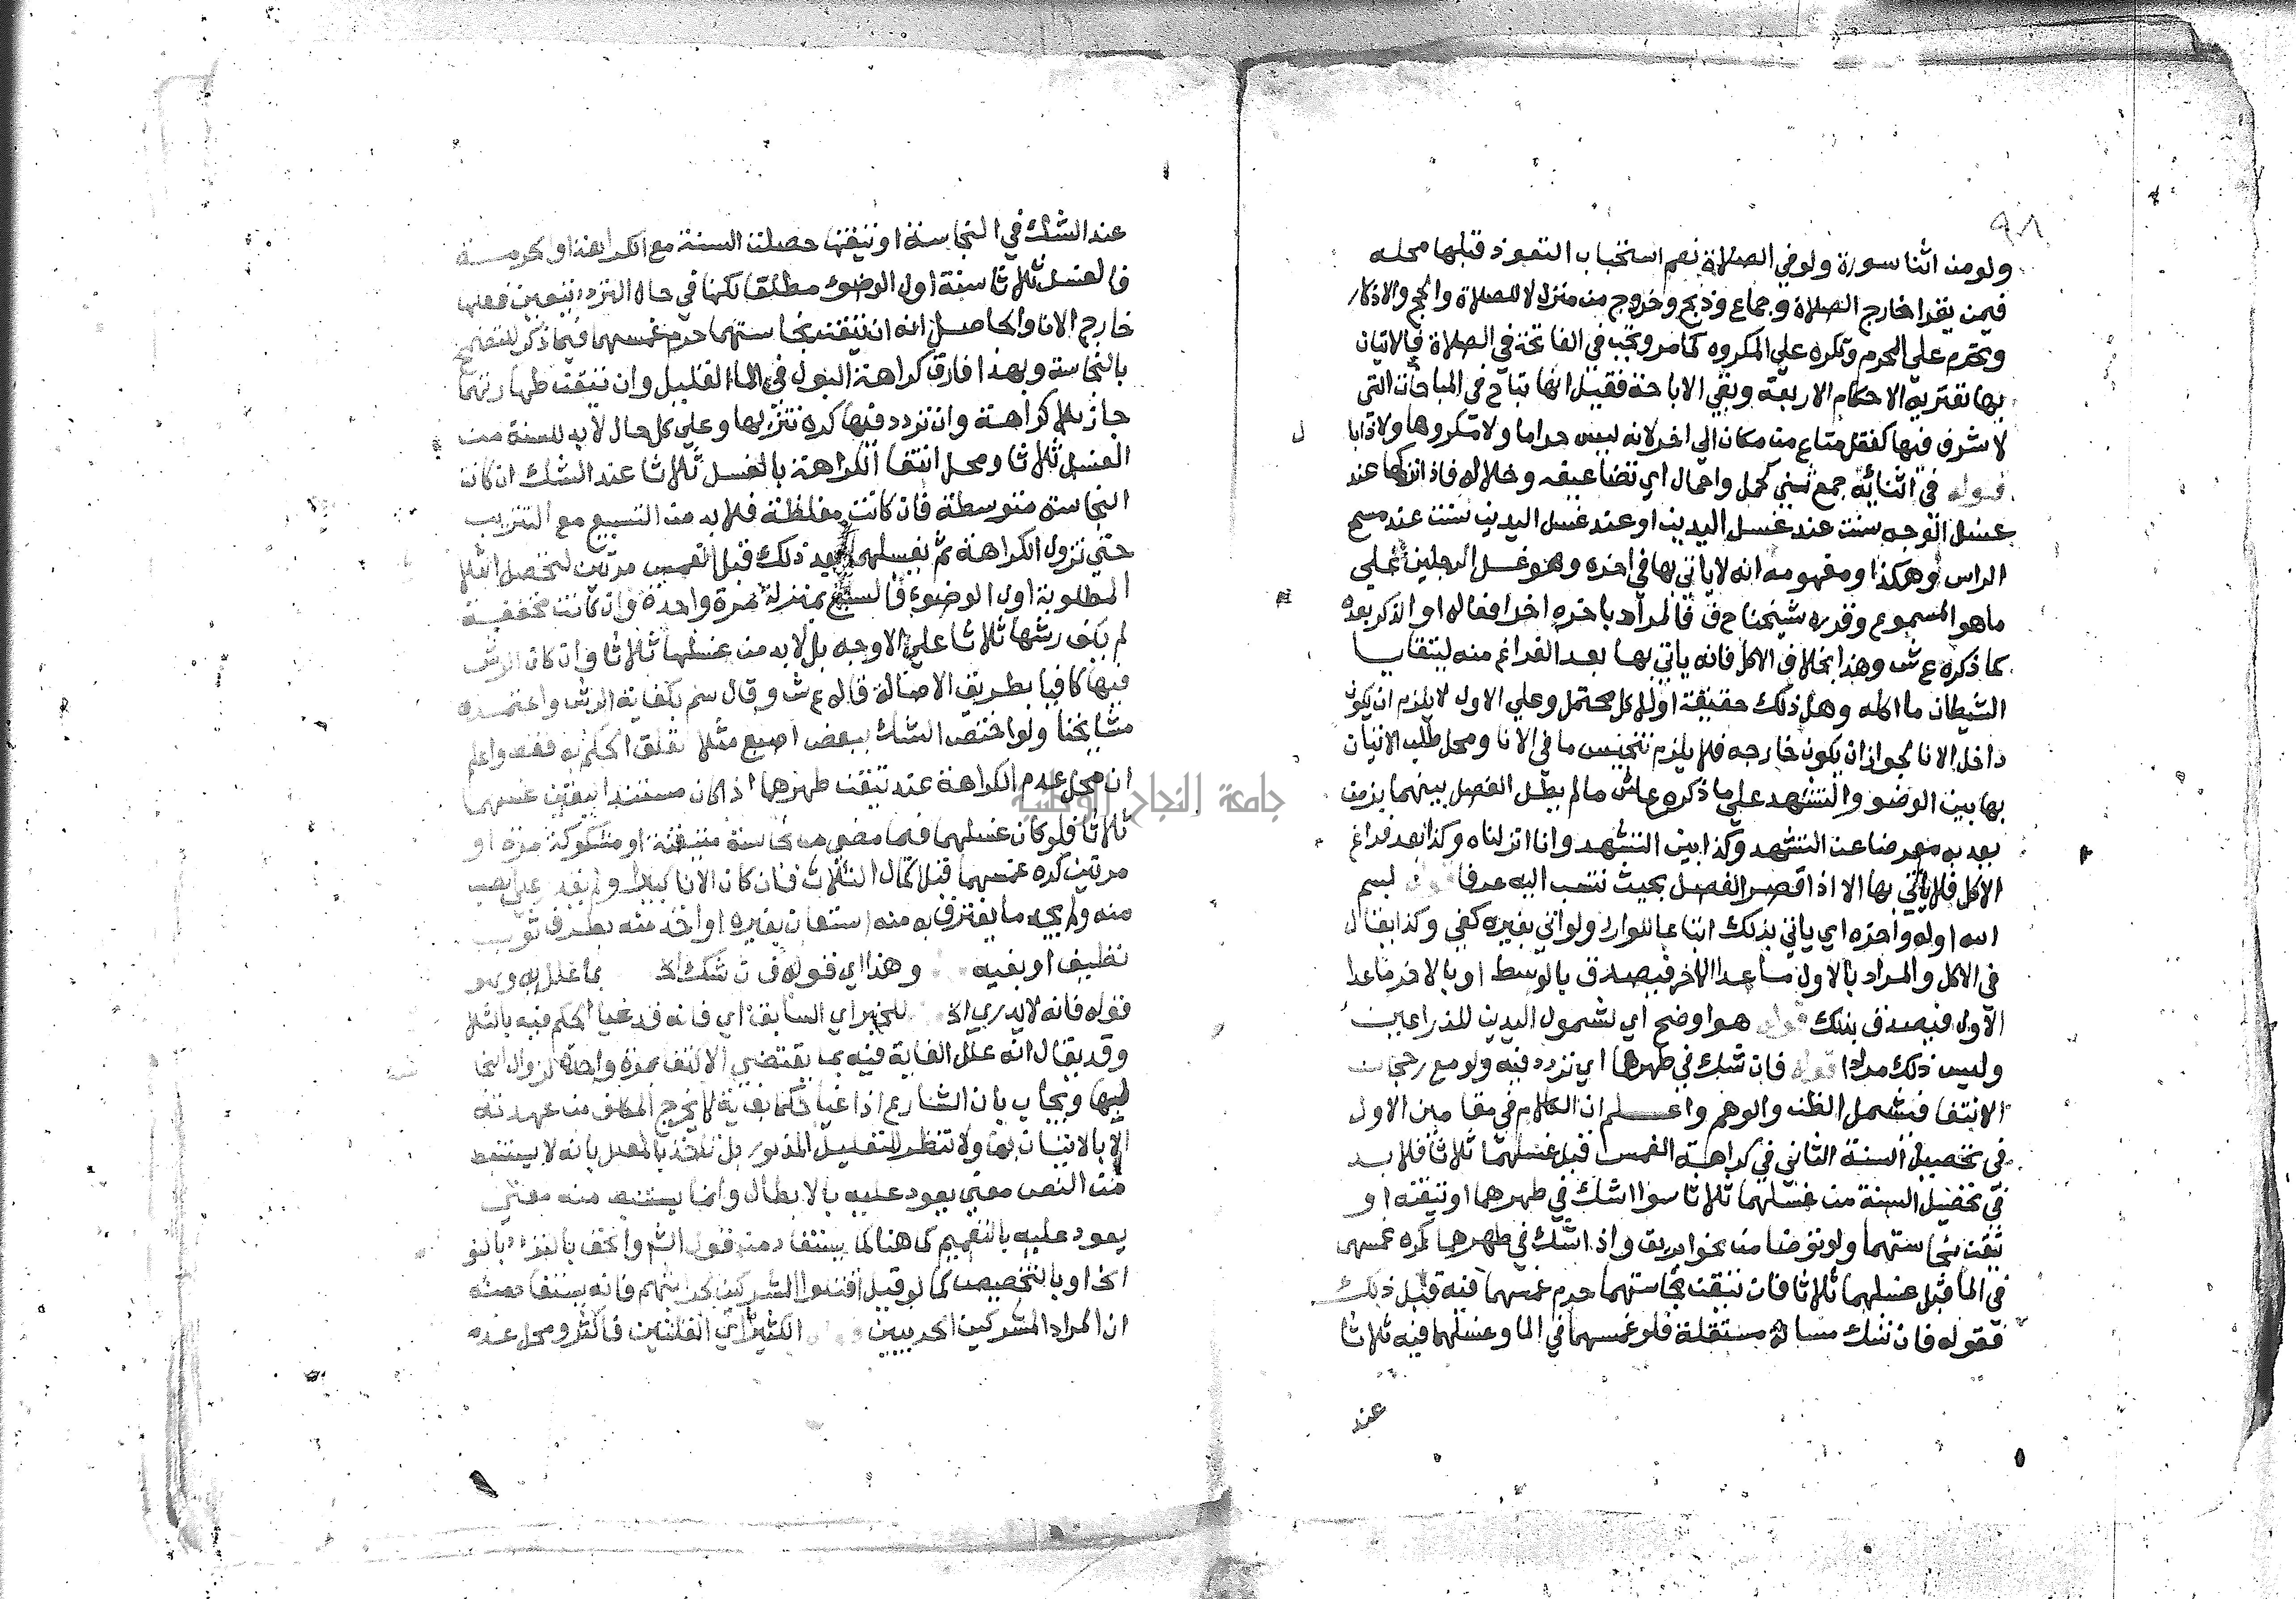 ٩٨
ولو من اثنا سورة ولو في الصلاة نعم استحباب التعوذ قبلها محله
فيمن يقرا خارج الصلاة وجماع وذبح وخروج من منزل لا للصلاة والحج والاذكار
وتحرم علي المحرم وتكره علي المكروه كما مر وتجب في الفاتحة في الصلاة فالاتيان
بها تعتريه الاحكام الاربعة وبقي الاباحة فقيل انها تباح في المباحات التي
لا شرف فيها كنقل متاع من مكان الي اخر لانه ليس حراما ولا مكروها ولا ذا با
ل
قوله في اثنائه جمع ثني كحمل واحمال اي تضاعيفه وخلاله فاذا تركها عند
غسل الوجه سنت عند غسل اليدين او عند غسل اليدين سنت عند مسح
الراس وهكذا ومفهومه انه لا ياتي بها في اخره وهو غسل الرجلين علي
ما هو المسموع وقرره شيخنا ح ف فالمراد باخره اخر افعاله او الذكر بعده
كما ذكره ع ش وهذا بخلاف الاكل فانه ياتي بها بعد الفراغ منه ليتقايا
الشيطان ما اكله وهل ذلك حقيقة او لا كل محتمل وعلي الاول لا يلزم ان يكون
داخل الانا لجواز ان يكون خارجه فلا يلزم تنجيس ما في الانا ومحل طلب الاتيان
بها بين الوضو والتشهد علي ما ذكره ع ش ما لم يطل الفصل بينهما بزمن
يعد به معرضا عن التشهد وكذا بين التشهد وانا انزلناه وكذا بعد فراغ
الاكل فلا ياتي بها الا اذا قصر الفصل بحيث تنسب اليه عرفا قوله بسم
الله اوله واخره اي ياتي بذلك اتباعا للوارد ولو اتي بغيره كفي وكذا يقال
في الاكل والمراد بالاول ما عدا الاخر فيصدق بالوسط او بالاخر ما عدا
الاول فيصدق بذلك قوله هو اوضح اي لشمول اليدين للذراعين
وليس ذلك مرادا قوله فان شك في طهرهما اي تردد فيه ولو مع رجحان
الانتفا فيشمل الظن والوهم واعلم ان الكلام في مقامين الاول
في تحصيل السنة الثاني في كراهة الغمس قبل غسلهما ثلاثا فلا بد
في تحصيل السنة من غسلهما ثلاثا سوا شك في طهرهما او تيقنه او
تيقن نجاستهما ولو توضا من نحو ابريق واذا شك في طهرهما كره غمسهما
في الما قبل غسلهما ثلاثا فان تيقن نجاستهما حرم غمسهما فيه قبل ذلك
فقوله فان شك مسالة مستقلة فلو غمسهما في الما وغسلهما فيه ثلاثا
عند
عند الشك في النجاسة او تيقنها حصلت السنة مع الكراهة او الحرمة
فالغسل ثلاثا سنة اول الوضوء مطلقا لكنها في حال التردد يتعين فعلها
خارج الانا والحاصل انه ان تيقن نجاستهما حرم غمسهما فيما ذكر للتضمخ
بالنجاسة وبهذا فارق كراهة البول في الما القليل وان تيقن طهارتهما
جاز بلا كراهة وان تردد فيها كره تنزيها وعلي كل حال لا بد للسنة من
الغسل ثلاثا ومحل انتفا الكراهة بالغسل ثلاثا عند الشك ان كانت
النجاسة متوسطة فان كانت مغلظة فلا بد من التسبيع مع التتريب
حتي تزول الكراهة ثم يغسلهما بعد ذلك قبل الغمس مرتين لتحصل الثلا
المطلوبة اول الوضوء فالسبع بمنزلة مرة واحدة وان كانت مخففة
لم يكف رشها ثلاثا علي الاوجه بل لا بد من غسلها ثلاثا وان كان الرش
فيها كافيا بطريق الاصالة قاله ع ش وقال سم بكفاية الرش واعتمده
مشايخنا ولو اختص الشك ببعض اصبع مثلا تعلق الحكم به فقط واعلم
ان محل عدم الكراهة عند تيقن طهرهما اذا كان مستندا ليقين غسلهما
ثلاثا فلو كان غسلهما فيما مضي من نجاسة متيقنة او مشكوكة مرة او
مرتين كره غمسهما قبل كمال الثلاث فان كان الانا كبيرا ولم يقدر علي الصب
منه ولم يجد ما يغترف به منه استعان بغيره او اخذ منه بطرف ثوب
نظيف او بفيه وهذا اي قوله فان شك الخ بما علل به وهو
قوله فانه لا يدري الخ للخبر اي السابق اي فانه قد غيا الحكم فيه بالثلا
وقد يقال انه علل الغاية فيه بما يقتضي الاكتفا بمرة واحدة لزوال النجا
فيها ويجاب بان الشارع اذا غيا حكما بغاية لا يخرج المكلف من عهدته
الا بالاتيان بها ولا تنظر للتعليل المذكور بل تاخذ بالمعلل بانه لا يستنبط
من النص معني يعود عليه بالابطال وانما يستنبط منه معني
يعود عليه بالتعميم كما هنا كما يستفاد من قول الشم والحق بالتردد بالنو
الخ او بالتخصيص كما لو قيل اقتلوا المشركين لحرابتهم فانه يستفاد منه
ان المراد المشركين الحربيين الكثير اي القلتين فاكثر ومحل عدم
جامعة النجاح الوطنية